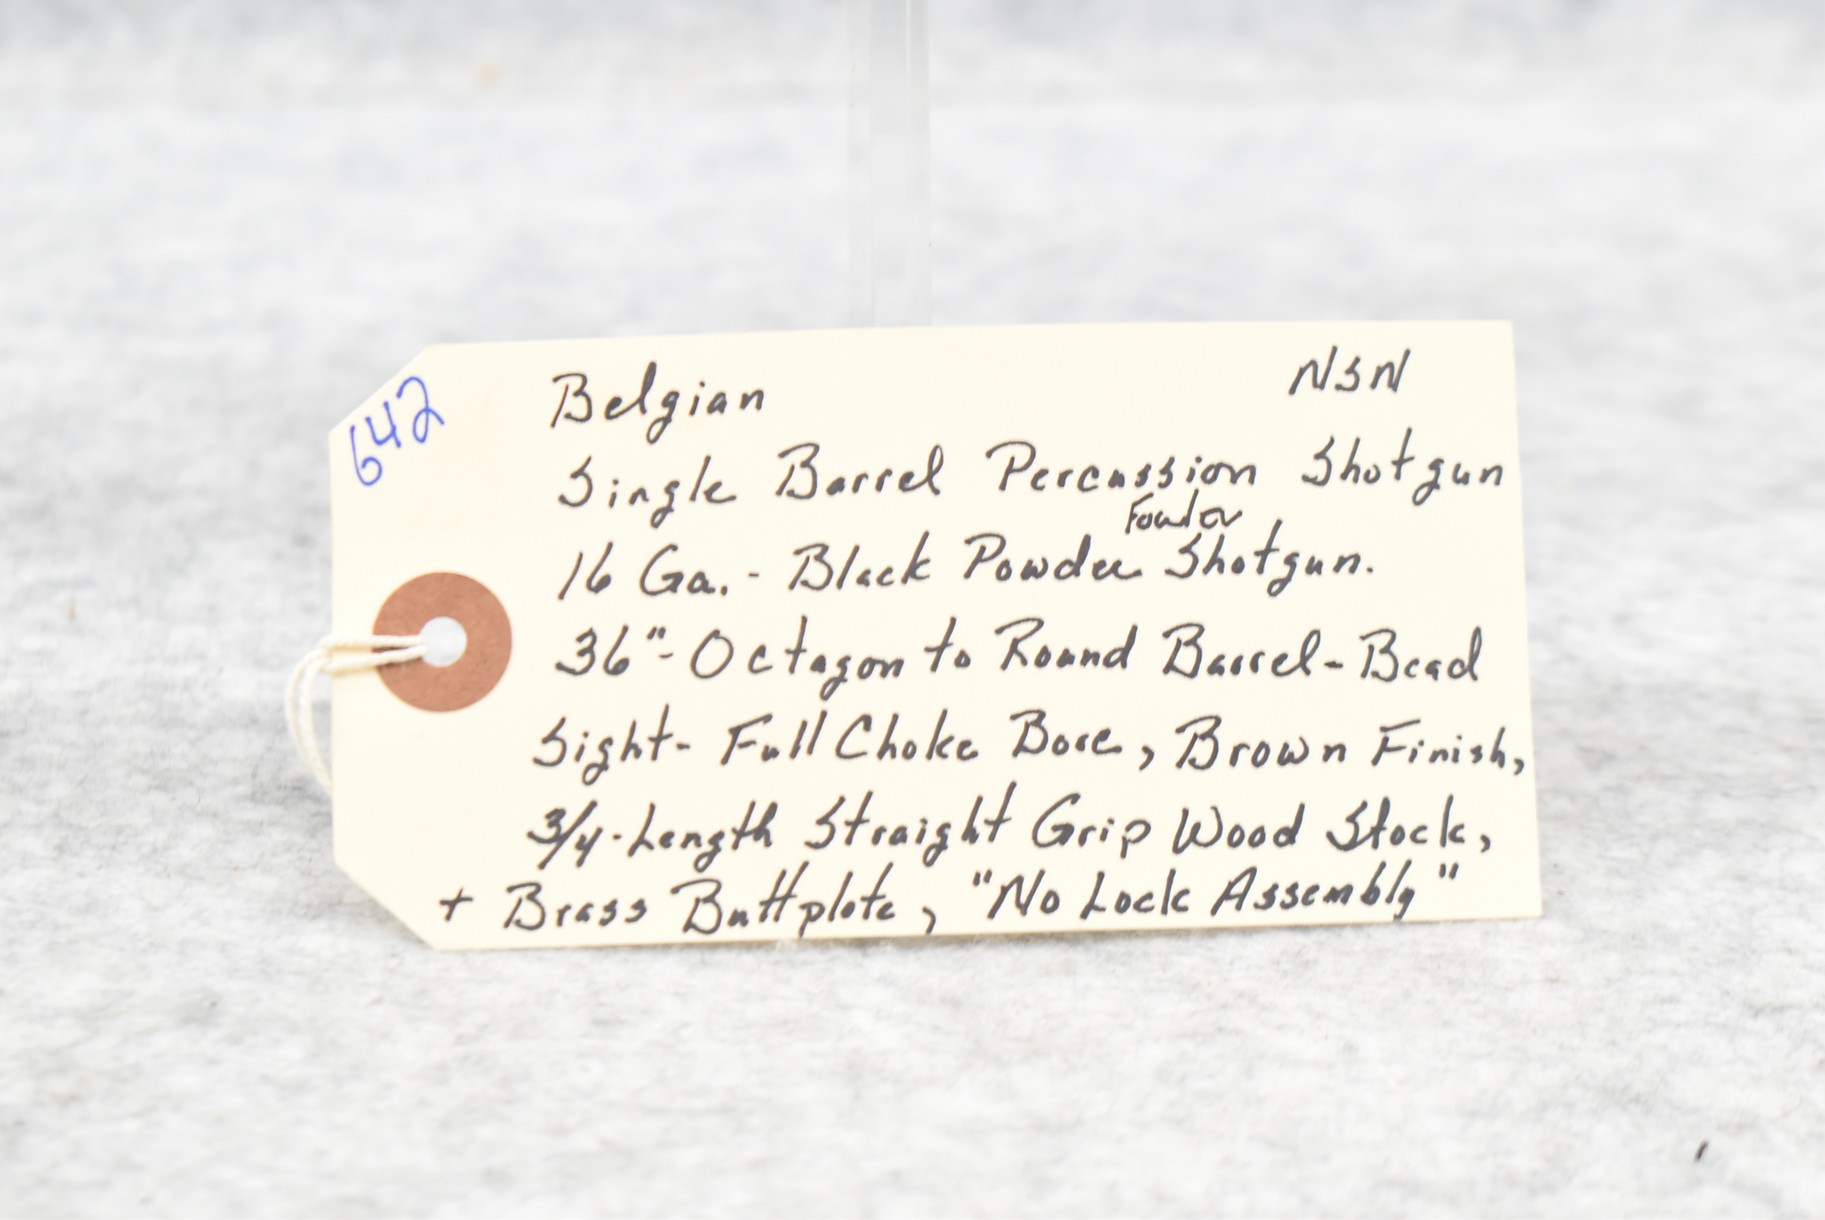 642
Belgian NSN
Single Barrel Percussion Shotgun
Fowler
16 Ga. - Black Powder Shotgun.
36"- Octagon to Round Barrel - Bead
Sight - Full Choke Bore, Brown Finish,
3/4-Length Straight Grip Wood Stock,
+ Brass Buttplate, "No Lock Assembly"